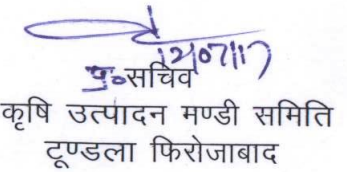 12/07/17
प्र०सचिव
कृषि उत्पादन मण्डी समिति
टूण्डला फिरोजाबाद